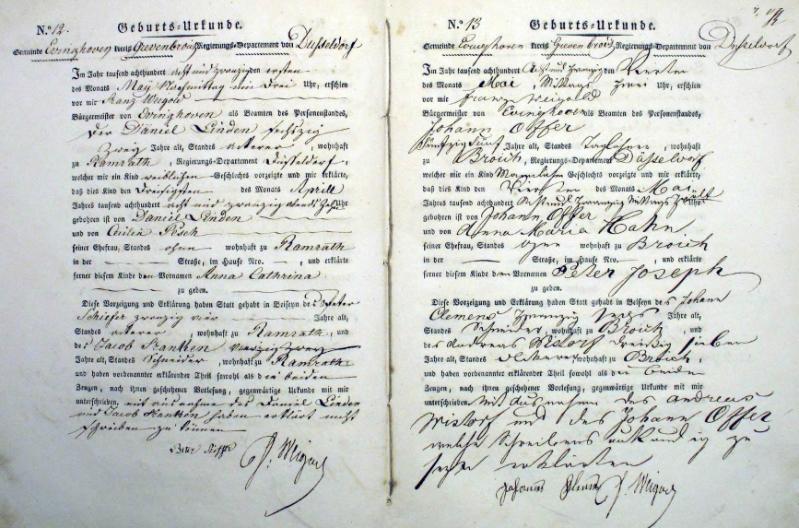 N.º 12. Geburts-Urkunde.
Gemeinde Evinghoven Kreis Grevenbroich Regierungs-Departement von Düsseldorf
Im Jahr tausend achthundert acht und zwanzig den ersten
des Monats May Nachmittag um drei Uhr, erschien
vor mir Franz
Bürgermeister von Evinghoven als Beamten des Personenstandes,
der Daniel Linden sechszig
zwey Jahre alt, Standes Ackerer, wohnhaft
zu Ramrath, Regierungs-Departement Düsseldorf,
welcher mir ein Kind weiblichen Geschlechts vorzeigte und mir erklärte,
daß dies Kind den dreisigsten des Monats Aprill
Jahres tausend achthundert acht und zwanzig Abends Uhr
gebohren ist von Daniel Linden
und von Cecilia Pesch
seiner Ehefrau, Standes ohne wohnhaft zu Ramrath
in der Straße, im Hause Nro. , und erklärte
ferner diesem Kinde den Vornamen Anna Cathrina
zu geben.
Diese Vorzeigung und Erklärung haben Statt gehabt in Beiseyn des Peter
Schiefer zwanzig Jahre alt,
Standes Ackerer wohnhaft zu Ramrath und
des Jacob Kanken vierzig zwey
Jahre alt, Standes Schneider, wohnhaft zu Ramrath
und haben vorbenannter erklärender Theil sowohl als die beiden
Zeugen, nach ihnen geschehener Vorlesung, gegenwärtige Urkunde mit mir
unterschrieben, mit ausnahme des Daniel Linden
und Jacob Kanken haben erklärt nicht
schreiben zu können
N.º 13 Geburts-Urkunde.
Gemeinde Evinghoven Kreis Grevenbroich Regierungs-Departement von Düsseldorf
Im Jahr tausend achthundert acht und zwanzig den vierten
des Monats Mai, Mittags zwei Uhr, erschien
vor mir Franz
Bürgermeister von Evinghoven als Beamten des Personenstandes,
Johann Offer
fünfzig fünf Jahre alt, Standes Taglöhner, wohnhaft
zu Broich, Regierungs-Departement Düsseldorf
welcher mir ein Kind Geschlechts vorzeigte und mir erklärte,
daß dies Kind den vierten des Monats Mai
Jahres tausend achthundert acht und zwanzig Mittags Uhr
gebohren ist von Johann Offer
und von Anna Maria Hahn
seiner Ehefrau, Standes ohne wohnhaft zu Broich
in der Straße, im Hause Nro. , und erklärte
ferner diesem Kinde den Vornamen Peter Joseph
zu geben.
Diese Vorzeigung und Erklärung haben Statt gehabt in Beiseyn des Johann
Clemens zwanzig sechs Jahre alt,
Standes Schneider, wohnhaft zu Broich, und
des Andreas Wistorf dreißig sieben
Jahre alt, Standes Ackerer wohnhaft zu Broich,
und haben vorbenannter erklärender Theil sowohl als die beiden
Zeugen, nach ihnen geschehener Vorlesung, gegenwärtige Urkunde mit mir
unterschrieben mit ausnahme des Andreas
Wistorf und des Johann Offer
welche Schreibens unkundig zu
seyn erklärten